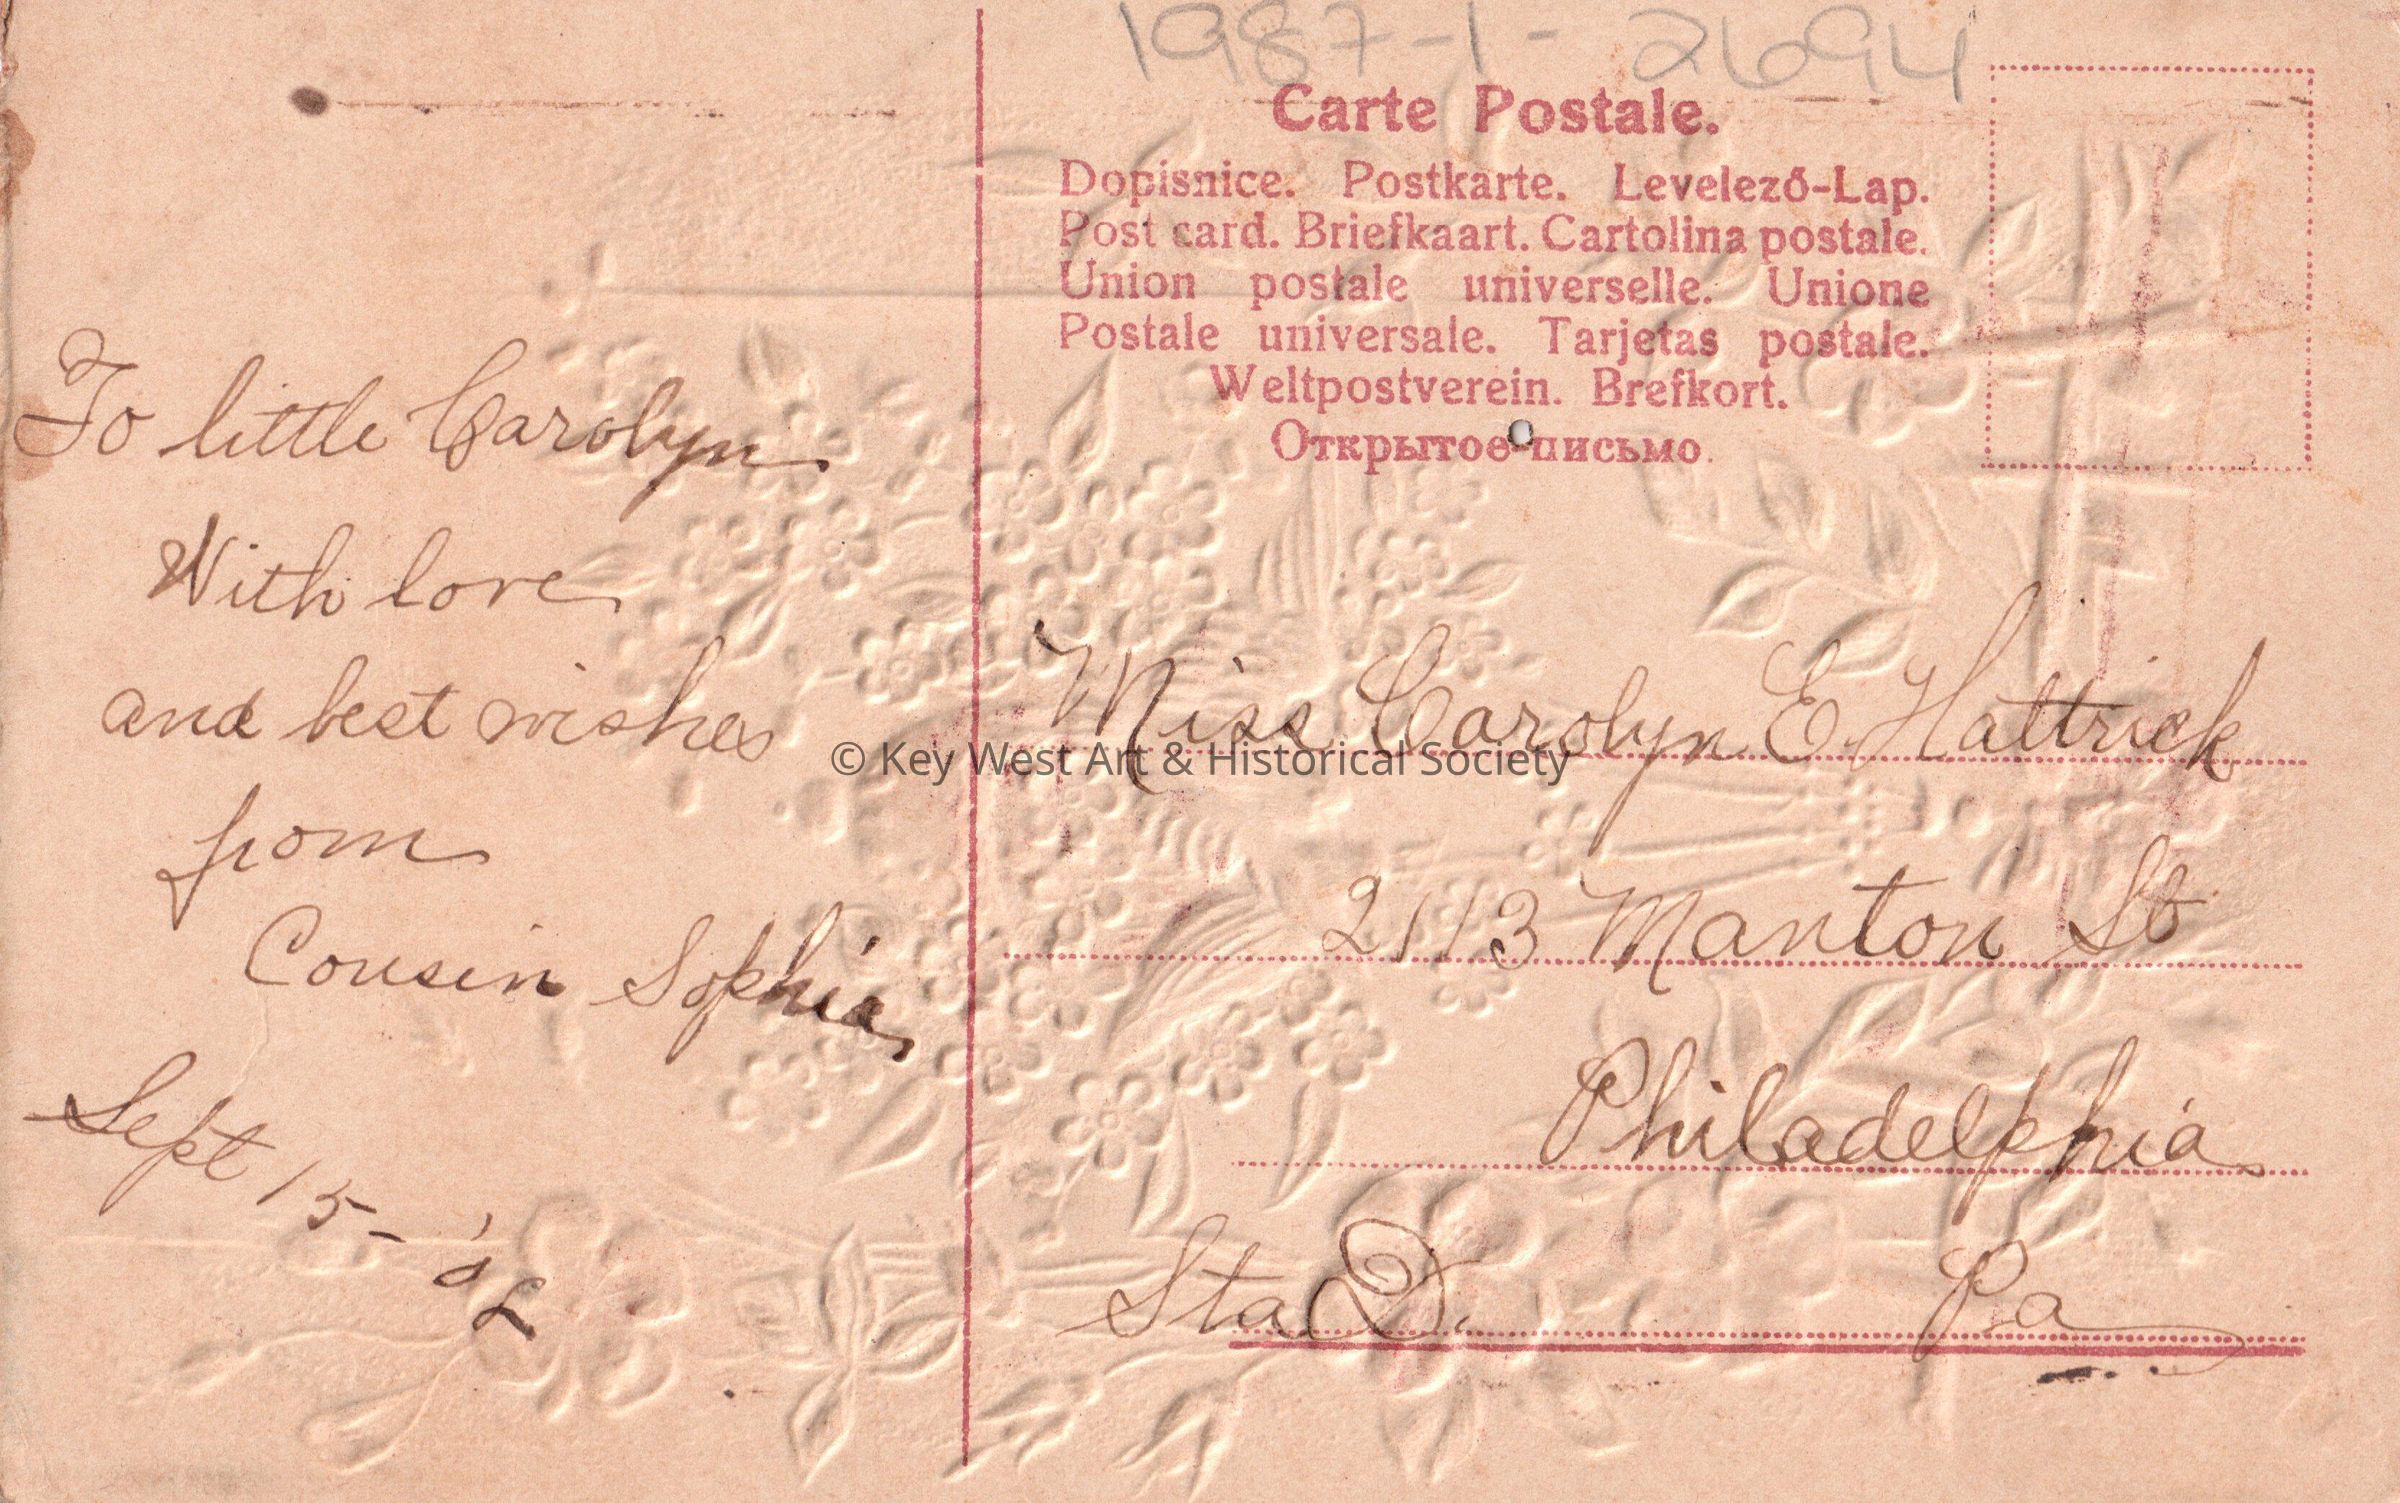 To little Carolyn
With love
and best wishes
from
Cousin Sophia
Sept 15-
1987-1-2694
Carte Postale.
Dopisnice. Postkarte. Levelező-Lap.
Post card. Briefkaart. Cartolina postale.
Union postale universelle. Unione
Postale universale. Tarjetas postale.
Weltpostverein. Brefkort.
Открытое-письмо.
Miss Carolyn E. Hattrick
2113 Manton St
Philadelphia
Sta D. Pa
© Key West Art & Historical Society